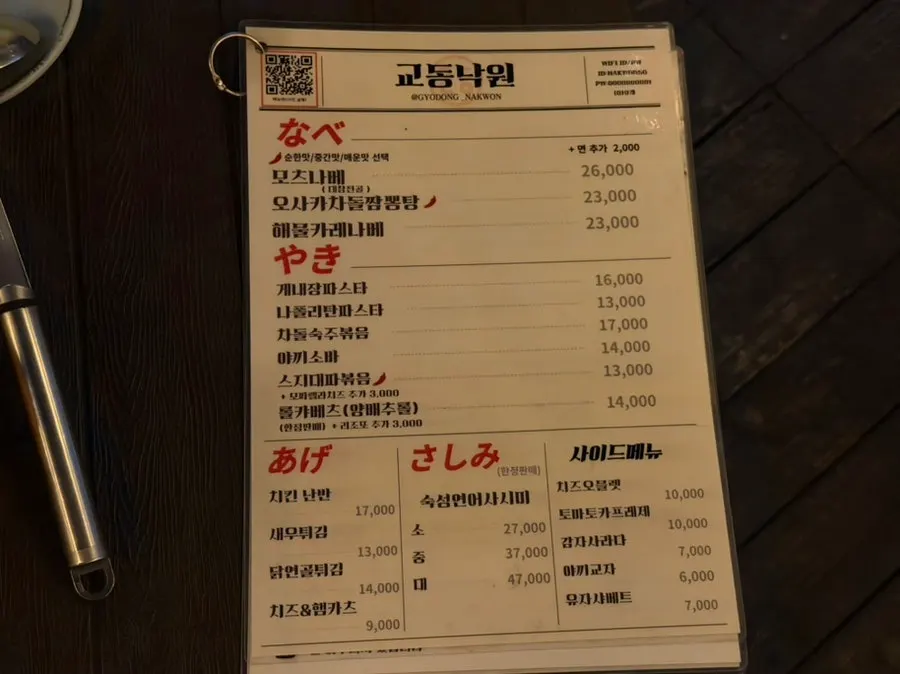 교동낙원
@GYODONG_NAKWON
WIFI ID/PW
なべ
순한맛/중간맛/매운맛 선택
+ 면 추가 2,000
모츠나베 26,000
(대창전골)
오사카차돌짬뽕탕 23,000
해물카레나베 23,000
やき
게내장파스타 16,000
나폴리탄파스타 13,000
차돌숙주볶음 17,000
야끼소바 14,000
스지대파볶음 13,000
+ 모짜렐라치즈 추가 3,000
롤캬베츠(양배추롤) 14,000
(한정판매) + 리조또 추가 3,000
あげ
치킨 난반
17,000
새우튀김
13,000
닭연골튀김
14,000
치즈&햄카츠
9,000
さしみ
(한정판매)
숙성연어사시미
소 27,000
중 37,000
대 47,000
사이드메뉴
치즈오믈렛
10,000
토마토카프레제
10,000
감자사라다
7,000
야끼교자
6,000
유자샤베트
7,000